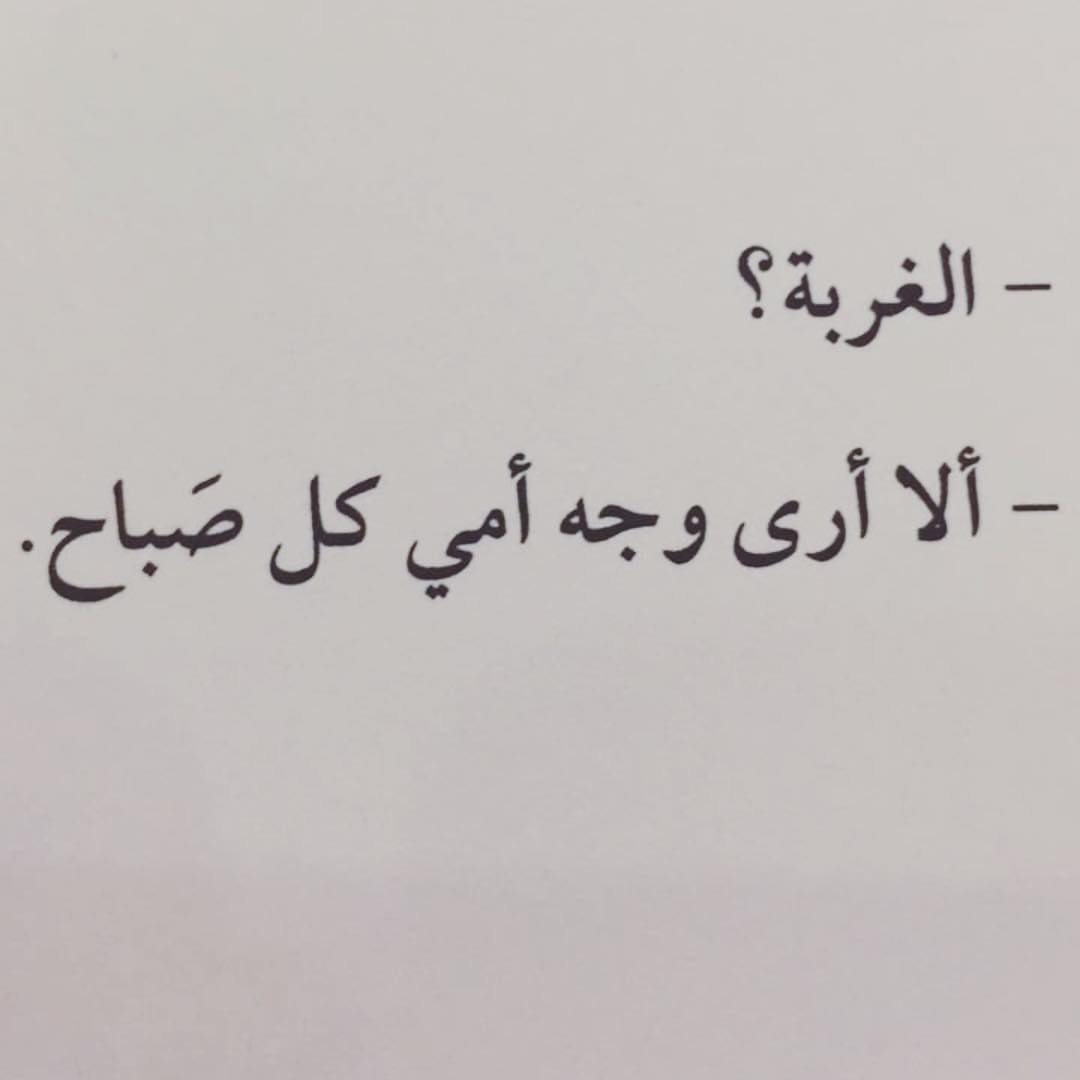 – الغربة؟
– ألا أرى وجه أمي كل صَباح.